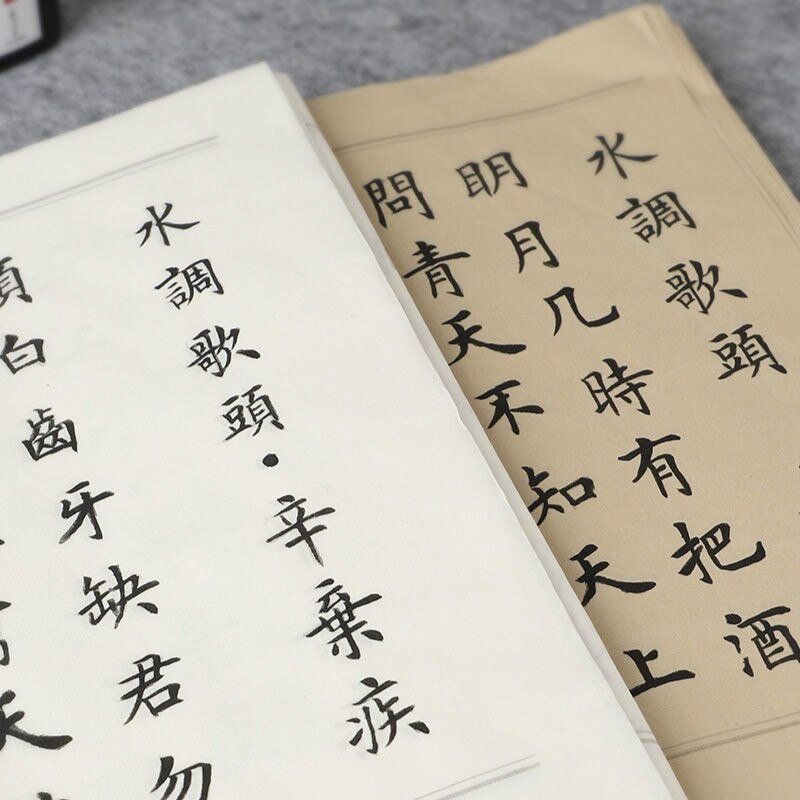 水調歌頭
明月几時有把酒
問青天不知天上
水調歌頭·辛棄疾
白齒牙缺君勿
天